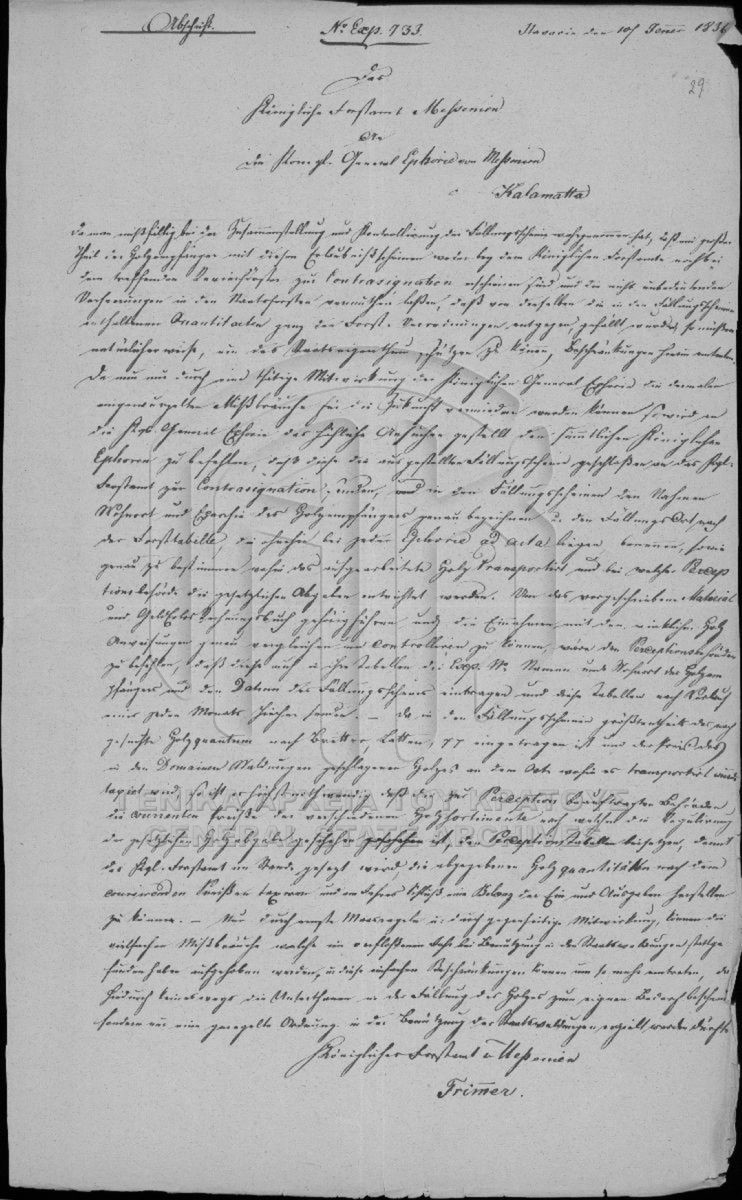 Abschrift.
No. Exp. 733.
Navarin den 10t Jenner 1836
29
Das
Königliche Forstamt Messenien
An
die Königl. General Ephorie von Messenien
Kalamatta
Da man mißfällig bei der Zusammenstellung und Kontrollirung der Fällungsscheine wahrgenommen hat, daß ein großer
Theil der Holzempfänger mit diesen Erlaubnißscheinen weder bey dem Königlichen Forstamte noch bei
dem treffenden Revierförster zur Contrasignation erschienen sind und die nicht unbedeutenden
Verheerungen in den Staatsforsten vermuthen lassen, daß von denselben die in den Fällungsscheinen
enthaltenen Quantitaeten ganz den Forst-Verordnungen entgegen gefällt wurden, so müssen
natürlicherweise, um das Staatseigenthum schützen zu können, Beschränkungen hierin eintreten.
Da nun nur durch eine thätige Mitwirkung der Königlichen General Ephorie die dermalen
eingewurzelten Mißbräuche für die Zukunft vermieden werden können so wird an
die Kgl. General Ephorie das höfliche Ansuchen gestellt den sämmtlichen Königlichen
Ephoren zu befehlen, daß diese die ausgestellten Fällungsscheine geschlossen an das Kgl.
Forstamt zur Contrasignation senden, und in den Fällungsscheinen den Nahmen
Wohnort und Eparchie des Holzempfängers genau bezeichnen u. den Fällungs Ort nach
der Forsttabelle, die bei jeder Ephorie ad acta liegen, benennen, sowie
genau zu bestimmen wohin das ausgearbeitete Holz transportirt und bei welcher Percep
tionsbehörde die gesetzlichen Abgaben entrichtet werden. Um das vorgeschriebene Material
und Geld Rechnungsbuch gehörig führen und die Einnahmen mit den wirklichen Holz
Anweisungen genau vergleichen und controlliren zu können, wäre den Perceptionsbehörden
zu befehlen, daß diese auch in ihre Tabellen die Exp. No. Namen und Wohnort des Holzem
pfängers und den Datum des Fällungsscheines eintragen und diese Tabellen nach Verlauf
eines jeden Monats hieher senden. – Da in den Fällungsscheinen größtentheils das nach
gesuchte Holzquantum nach Bretter, Latten, pp eingetragen ist und der Preis des
in den Domainen Waldungen geschlagenen Holzes an dem Orte wohin es transportirt wird
taxirt wird, so ist es höchst nothwendig daß die zur Perception beauftragten Behörden
die currenten Preise der verschiedenen Holzsortimente nach welchen die Regulirung
der gesetzlichen Holzabgabe geschehen ist, den Perceptionstabellen beisetzen, damit
das Kgl. Forstamt im Stande gesezt werde, die abgegebenen Holzquantitäten nach den
currirenden Preißen taxiren und am Jahres Schluß eine Belege der Ein und Ausgaben herstellen
zu können. – Nur durch ernste Maasregeln u: durch gegenseitige Mitwirkung, können die
vielfachen Mißbräuche welche im verflossenen Jahr bei Benützung in den Staatswaldungen stattge
funden haben aufgehoben werden, u: diese einfachen Beschränkungen können um so mehr eintreten, da
hiedurch keineswegs die Unterthanen in der Fällung des Holzes zum eigenen Bedarf beschränkt
sondern nur eine geregelte Ordnung in der Benützung der Staatswaldungen erzielt werden dürfte
Königliches Forstamt Messenien
Frimmer.
ΓΕΝΙΚΑ ΑΡΧΕΙΑ ΤΟΥ ΚΡΑΤΟΥΣ
GENERAL STATE ARCHIVES